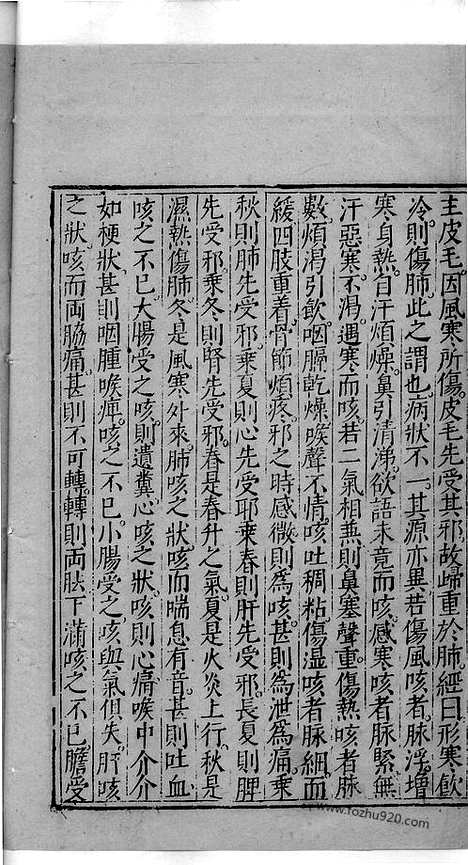 主皮毛因風寒所傷皮毛先受其邪故歸重於肺經曰形寒飲
冷則傷肺此之謂也病狀不一其源亦異若傷風咳者脉浮增
寒身熱自汗煩燥鼻引清涕欲語未竟而咳感寒咳者脉緊無
汗惡寒不渴遇寒而咳若二氣相無則鼻塞聲重傷熱咳者脉
數煩渴引飲咽膈乾燥喉聲不情咳吐稠粘傷湿咳者脉細而
緩四肢重着骨節煩疼邪之時感微則為咳甚則為泄為痛乗
秋則肺先受邪乗夏則心先受耶乗春則肝先受邪長夏則脾
先受邪乘冬則腎先受邪春是春升之氣夏是火炎上行秋是
濕熱傷肺冬是風寒外來肺咳之狀咳而喘息有音甚則吐血
咳之不已大腸受之咳則遺糞心咳之狀咳則心痛喉中介介
如梗狀甚則咽腫喉痺咳之不已小腸受之咳與氣俱失肝咳
之狀咳而両脇痛甚則不可轉轉則両胠下滿咳之不已膽受
www.fozhu920.com